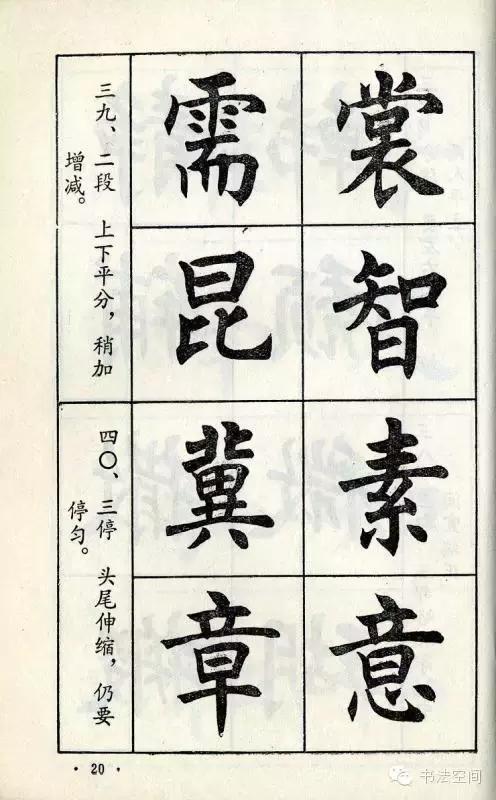 三九、二段 上下平分，稍加
增减。
裳 需
智 昆
四〇、三停 头尾伸缩，仍要
停匀。
素 冀
意 章
· 20 ·
书法空间